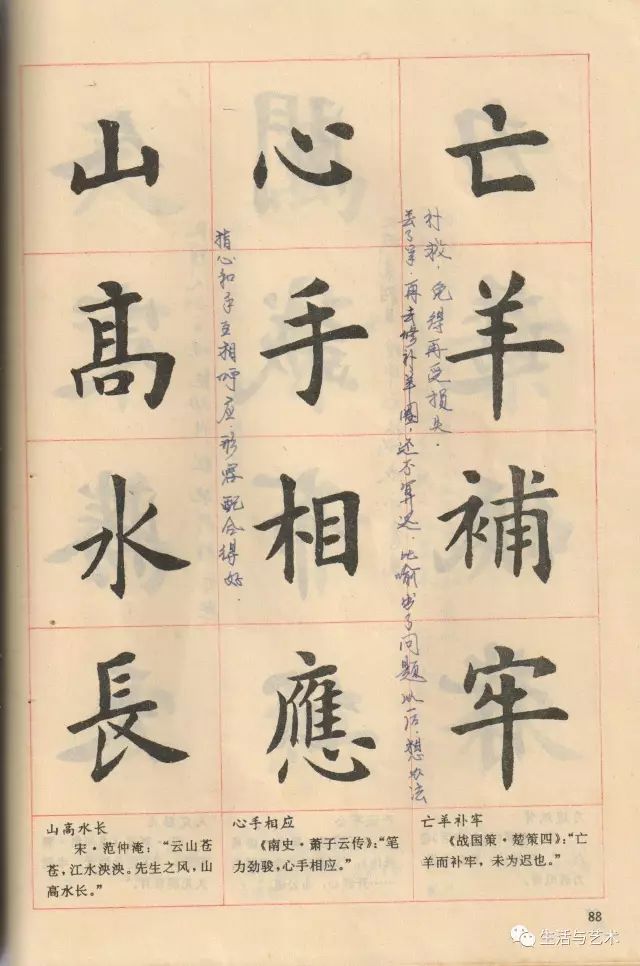 亡羊補牢
丢了羊,再去修补羊圈,还不算迟.比喻出了问题以后,想办法
补救,免得再受损失.
心手相應
指心和手互相呼应.形容配合得好.
山高水長
亡羊补牢
《战国策·楚策四》:“亡
羊而补牢,未为迟也。”
心手相应
《南史·萧子云传》:“笔
力劲骏,心手相应。”
山高水长
宋·范仲淹:“云山苍
苍,江水泱泱。先生之风,山
高水长。”
88
生活与艺术